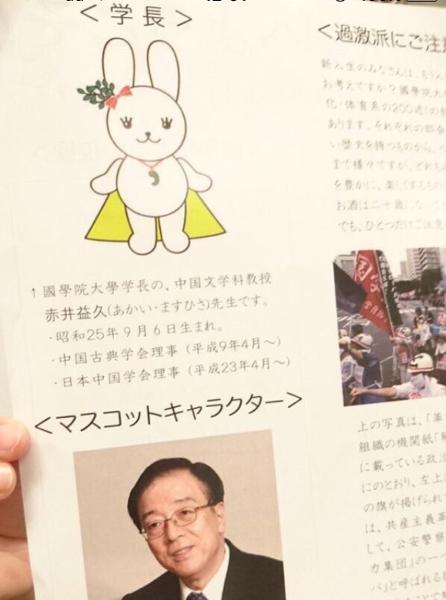 <学長>
↑國學院大學学長の、中国文学科教授
赤井益久(あかい・ますひさ)先生です。
・昭和25年9月6日生まれ。
・中国古典学会理事(平成9年4月～)
・日本中国学会理事(平成23年4月～)
<マスコットキャラクター>
<過激派にご注意
新入生のみなさんは、もう
お考えですか?國學院大
化・体育系の200近い
あります。それぞれの部
い歴史を持つものから、
まで様々ですが、どれも
を豊かに、楽しくするもの
お酒は二十歳になって
でも、ひとつだけご注意
上の写真は、「革
組織の機関紙「
に載っている政治
にのとおり、左上
の旗が掲げられ
は、共産主義革
して、公安警察
力集団」の一
バ」と呼ばれる